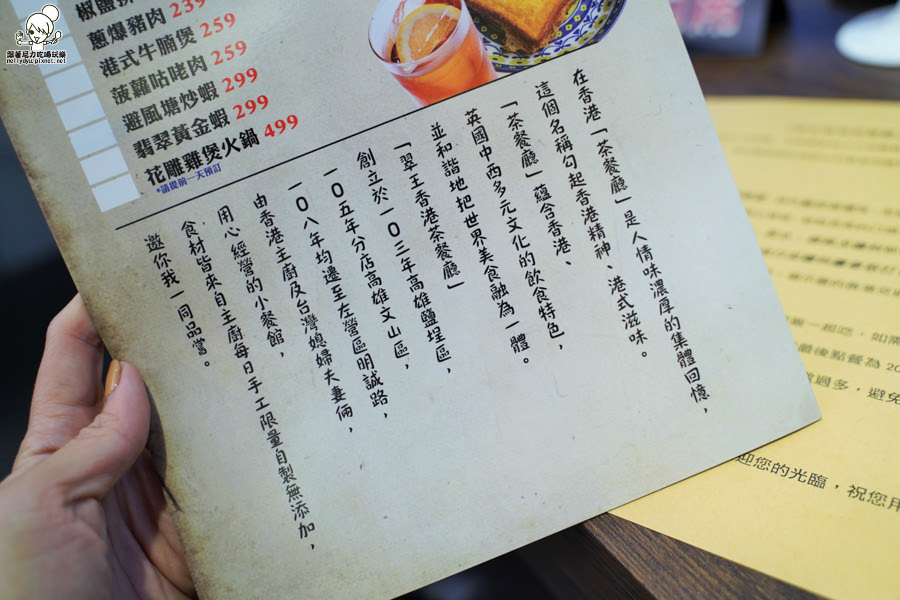 跟著尼力吃喝玩樂
nellydyu.pixnet.net
蔥爆豬肉 239
港式牛腩煲 259
菠蘿咕咾肉 259
避風塘炒蝦 299
翡翠黃金蝦 299
花雕雞煲火鍋 499
*請提前一天預訂
在香港「茶餐廳」是人情味濃厚的集體回憶，
這個名稱勾起香港精神、港式滋味。
「茶餐廳」蘊含香港、
英國中西多元文化的飲食特色，
並和諧地把世界美食融為一體。
「翠王香港茶餐廳」
創立於一0三年高雄鹽埕區，
一0五年分店高雄文山區，
一0八年均遷至左營區明誠路，
由香港主廚及台灣媳婦夫妻倆，
用心經營的小餐館，
食材皆來自主廚每日手工限量自製無添加，
邀你我一同品嘗。
一起吃，如需
最後點餐為 20
過多，避免
迎您的光臨，祝您用